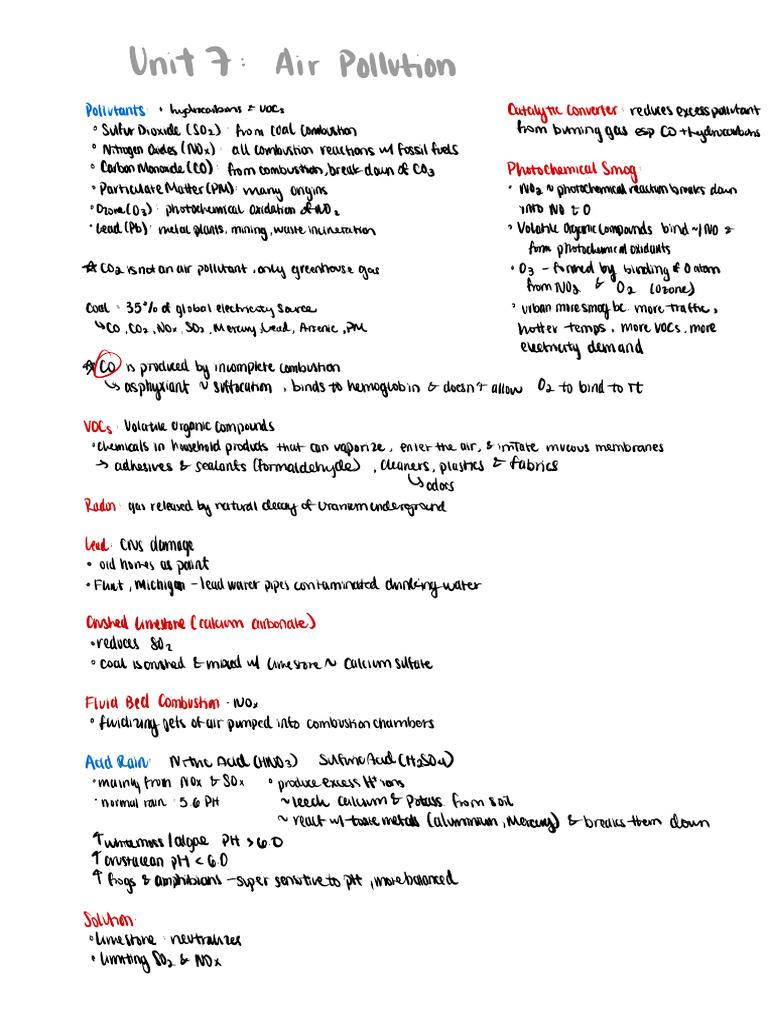 Unit 7: Air Pollution
Pollutants: • hydrocarbons & VOCs
• Sulfur Dioxide (SO2): from coal combustion
• Nitrogen Oxides (NOx): all combustion reactions w/ fossil fuels
• Carbon Monoxide (CO): from combustion, break down of CO3
• Particulate Matter (PM): many origins
• Ozone (O3): photochemical oxidation of NO2
• Lead (Pb): metal plants, mining, waste incineration
☆ CO2 is not an air pollutant, only greenhouse gas
Coal = 35% of global electricity source
↳ CO, CO2, NOx, SO2, Mercury, Lead, Arsenic, PM
☆ CO is produced by incomplete combustion
↳ asphyxiant ~ suffocation, binds to hemoglobin & doesn't allow O2 to bind to it
VOCs: Volatile Organic Compounds
• chemicals in household products that can vaporize, enter the air, & irritate mucous membranes
→ adhesives & sealants (formaldehyde), cleaners, plastics & fabrics
↳ odors
Radon: gas released by natural decay of Uranium underground
Lead: CNS damage
• old homes as paint
• Flint, Michigan – lead water pipes contaminated drinking water
Crushed Limestone (calcium carbonate)
• reduces SO2
• coal is crushed & mixed w/ limestone ~ calcium sulfate
Fluid Bed Combustion - NOx
• fluidizing jets of air pumped into combustion chambers
Acid Rain: Nitric Acid (HNO3) Sulfuric Acid (H2SO4)
• mainly from NOx & SOx • produce excess H+ ions
• normal rain: 5.6 PH ~ leech calcium & potass. from soil
~ react w/ toxic metals (aluminium, Mercury) & breaks them down
↑ /algae PH > 6.0
↑ crustacean pH < 6.0
↑ frogs & amphibians – super sensitive to pH, more balanced
Solution:
• limestone: neutralizes
• limiting SO2 & NOx
Catalytic Converter: reduces excess pollutant
from burning gas esp CO + hydrocarbons
Photochemical Smog:
• NO2 ~ photochemical reaction breaks down
into NO & O
• Volatile Organic Compounds bind w/ NO &
form photochemical oxidants
• O3 – formed by binding of O atom
from NO2 & O2 (ozone)
• urban more smog bc more traffic,
hotter temps, more VOCs, more
electricity demand